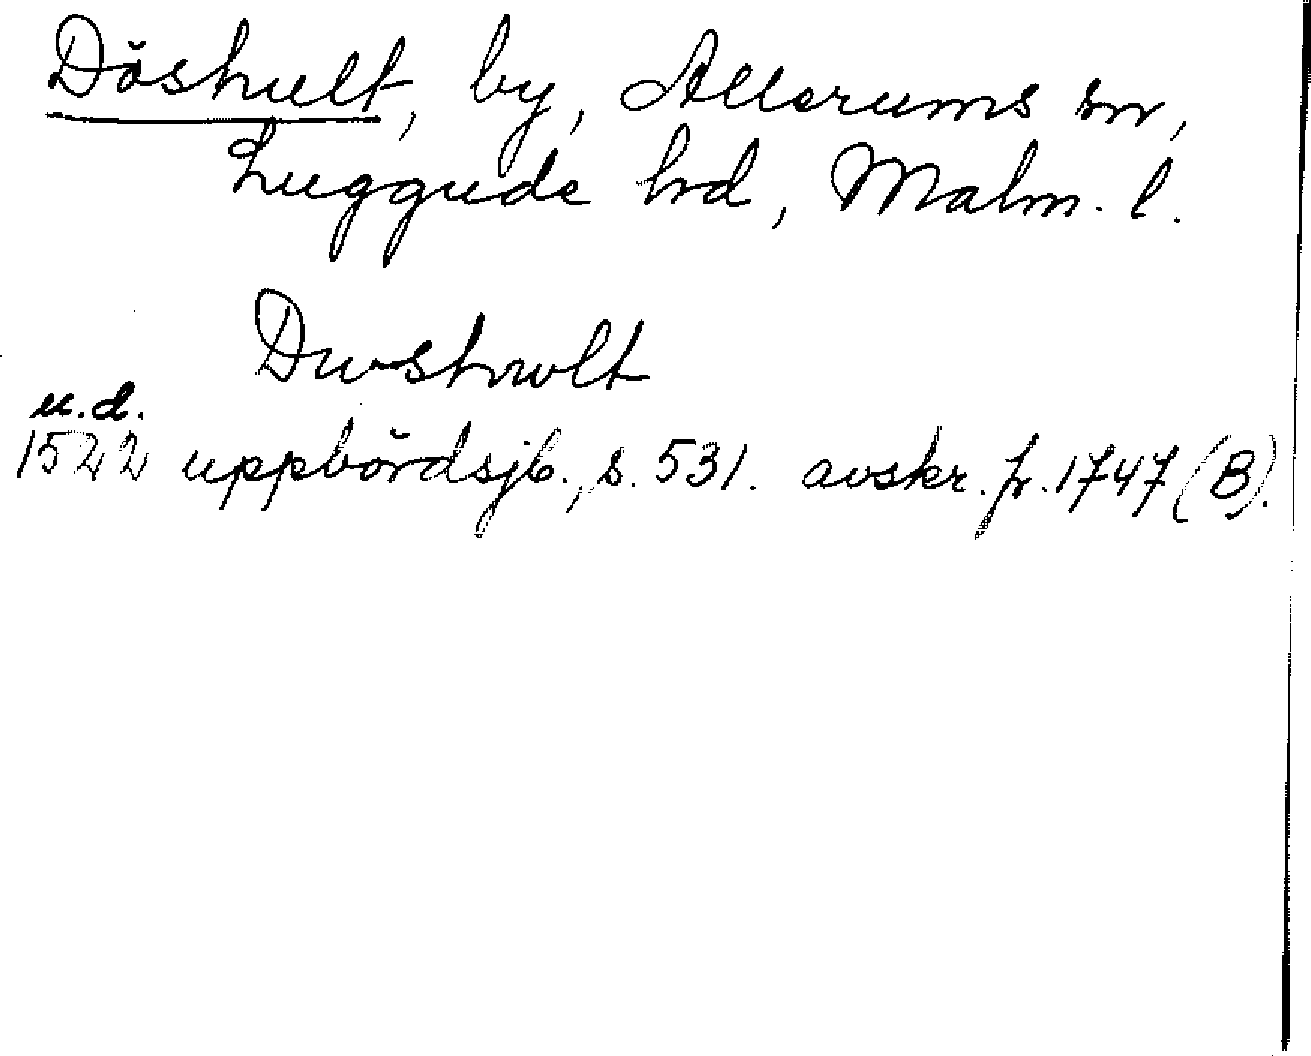 Döshult, by, Allerums sn,
Luggude hd, Malm. l.
Dwshwlt
u.d.
1522 uppbördsjb., s. 531. avskr. fr. 1747 (B).